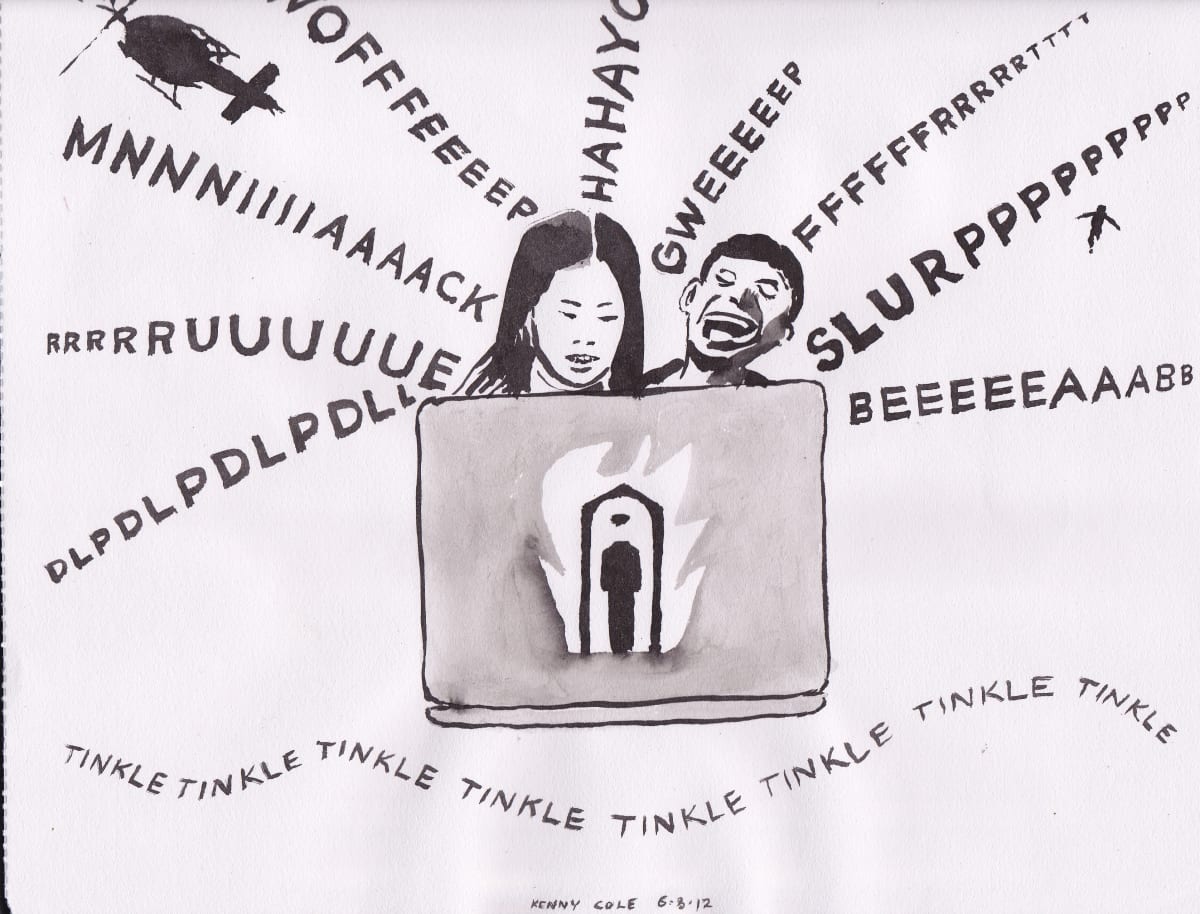 WOFFFEEEEP
HAHAYO
GWEEEEEP
FFFFFFFRRRRRRTTTT
MNNNNIIIIAAAAACK
SLURPPPPPPPPPPPP
RRRRRUUUUUUE
BEEEEEEAAABB
DLPDLPDLPDLPDLL
TINKLE TINKLE TINKLE TINKLE TINKLE TINKLE TINKLE TINKLE
KENNY COLE 6·3·12